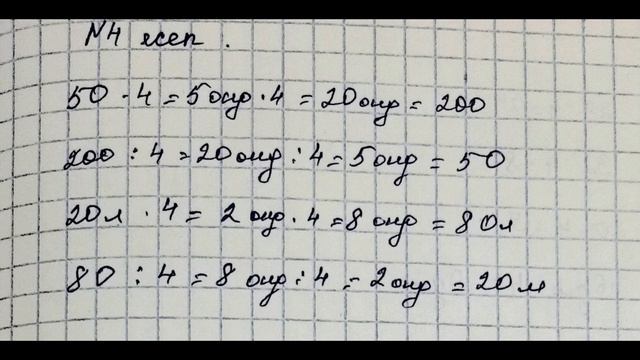 N4 есеп.
50 · 4 = 5 онд · 4 = 20 онд = 200
200 : 4 = 20 онд : 4 = 5 онд = 50
20 л · 4 = 2 онд · 4 = 8 онд = 80 л
80 : 4 = 8 онд : 4 = 2 онд = 20 л